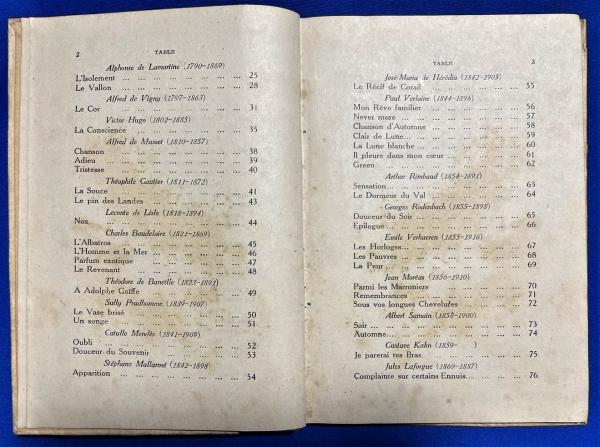 2 TABLE
Alphonse de Lamartine (1790-1869)
L'Isolement ... ... ... ... ... ... ... 25
Le Vallon ... ... ... ... ... ... ... 28
Alfred de Vigny (1797-1863)
Le Cor ... ... ... ... ... ... ... 31
Victor Hugo (1802-1885)
La Conscience ... ... ... ... ... ... 35
Alfred de Musset (1810-1857)
Chanson ... ... ... ... ... ... ... 38
Adieu ... ... ... ... ... ... ... 39
Tristesse ... ... ... ... ... ... ... 40
Théophile Gautier (1811-1872)
La Source ... ... ... ... ... ... ... 41
Le pin des Landes ... ... ... ... ... 43
Leconte de Lisle (1818-1894)
Nox ... ... ... ... ... ... ... 44
Charles Baudelaire (1821-1869)
L'Albatros ... ... ... ... ... ... ... 45
L'Homme et la Mer ... ... ... ... ... 46
Parfum exotique ... ... ... ... ... ... 47
Le Revenant ... ... ... ... ... ... 48
Théodore de Banville (1823-1891)
A Adolphe Gaïffe ... ... ... ... ... 49
Sully Prudhomme (1839-1907)
Le Vase brisé ... ... ... ... ... ... 50
Un songe ... ... ... ... ... ... ... 51
Catulle Mendès (1842-1909)
Oubli ... ... ... ... ... ... ... 52
Douceur du Souvenir ... ... ... ... ... 53
Stéphane Mallarmé (1842-1898)
Apparition ... ... ... ... ... ... ... 54
TABLE 3
José-Maria de Hérédia (1842-1905)
Le Récif de Corail ... ... ... ... ... 55
Paul Verlaine (1844-1896)
Mon Rêve familier ... ... ... ... ... 56
Never more ... ... ... ... ... ... 57
Chanson d'Automne ... ... ... ... ... 58
Clair de Lune... ... ... ... ... ... 59
La Lune blanche ... ... ... ... ... ... 60
Il pleure dans mon cœur ... ... ... ... 61
Green ... ... ... ... ... ... ... 62
Arthur Rimbaud (1854-1891)
Sensation... ... ... ... ... ... ... 63
Le Dormeur du Val ... ... ... ... ... 64
Georges Rodenbach (1855-1898)
Douceur du Soir ... ... ... ... ... ... 65
Epilogue ... ... ... ... ... ... ... 66
Emile Verhaeren (1855-1916)
Les Horloges... ... ... ... ... ... ... 67
Les Pauvres ... ... ... ... ... ... 68
La Peur ... ... ... ... ... ... ... 69
Jean Moréas (1856-1910)
Parmi les Marroniers ... ... ... ... ... 70
Remembrances ... ... ... ... ... ... 71
Sous vos longues Chevelures ... ... ... ... 72
Albert Samain (1858-1900)
Soir ... ... ... ... ... ... ... ... 73
Automne... ... ... ... ... ... ... 74
Gustave Kahn (1859- )
Je parerai tes Bras ... ... ... ... ... 75
Jules Laforgue (1860-1887)
Complainte sur certains Ennuis... ... ... ... 76